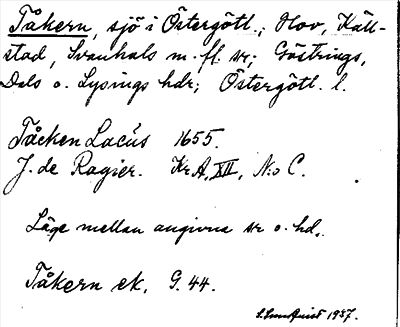 Tåkern, sjö i Östergötl.; Hov, Käll-
stad, Svanhals m.fl. sr; Göstrings,
Dals o. Lysings hdr; Östergötl. l.
Tåcken Lacus 1655.
J. de Ragier. Kr A, XII, N:o C.
Läge mellan angivna sr o. hd.
Tåkern ek. G. 44.
1937.